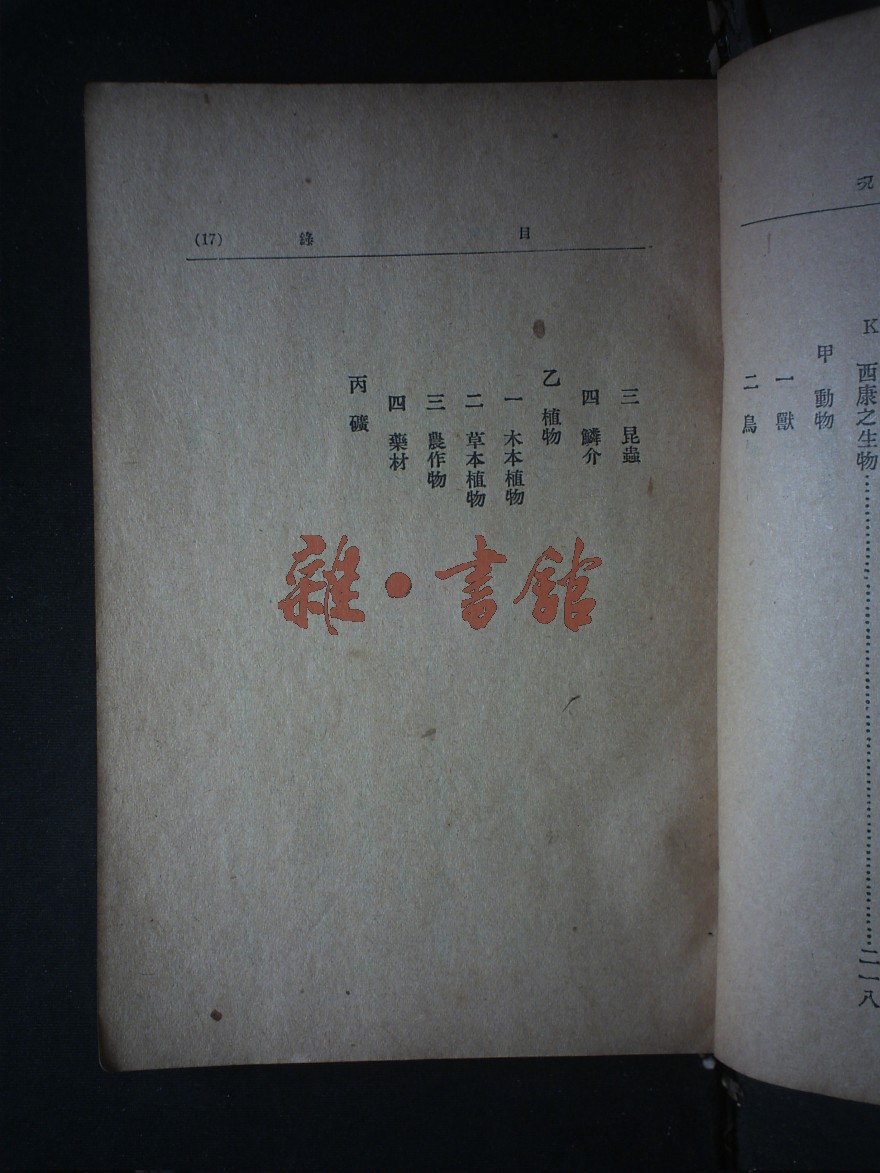 K 西康之生物……二一八
甲 動物
一 獸
二 鳥
目 錄 (17)
三 昆蟲
四 鱗介
乙 植物
一 木本植物
二 草本植物
三 農作物
四 藥材
丙 礦
雜·書館